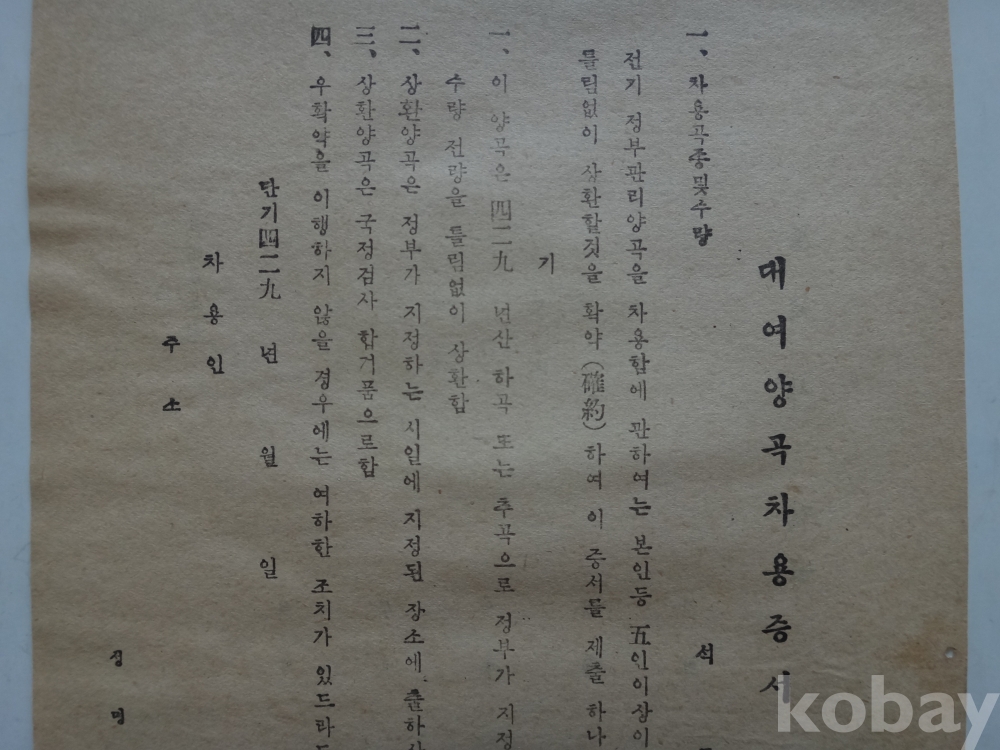 대여양곡차용증서
一、차용곡종및수량 석
전기 정부관리양곡을 차용함에 관하여는 본인등 五인이상이
틀림없이 상환할것을 확약(確約)하여 이 증서를 제출 하나
기
一、이 양곡은 四二九 년산 하곡 또는 추곡으로 정부가 지정
수량 전량을 틀림없이 상환함
二、상환양곡은 정부가 지정하는 시일에 지정된 장소에 출하
三、상환양곡은 국정검사 합격품으로함
四、우확약을 이행하지 않을 경우에는 여하한 조치가 있드라
단기四二九 년 월 일
차용인
주소
성명
kobay